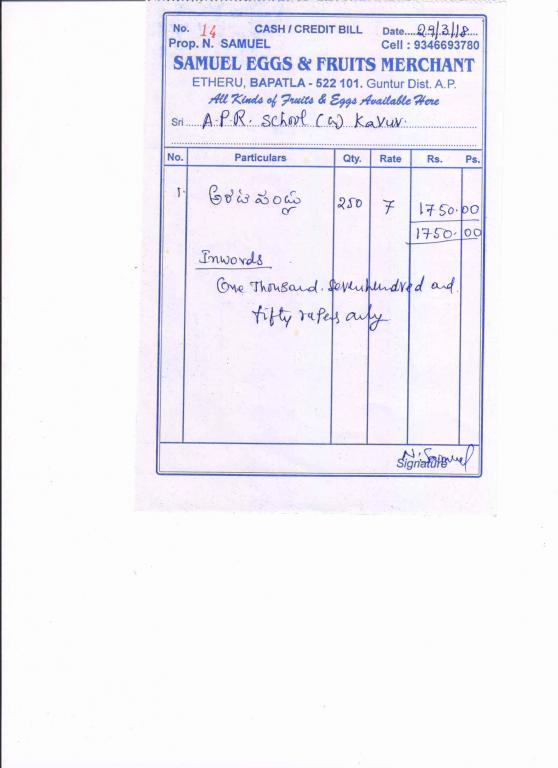 No. 14 CASH / CREDIT BILL Date....29/3/18..
Prop. N. SAMUEL Cell : 9346693780
SAMUEL EGGS & FRUITS MERCHANT
ETHERU, BAPATLA - 522 101. Guntur Dist. A.P.
All Kinds of Fruits & Eggs Available Here
Sri A.P.R. School (G) Kavur.
No. Particulars Qty. Rate Rs. Ps.
1. అరటి పండ్లు 250 7 1750.00
1750.00
Inwords
One Thousand. Sevenhundred and
fifty rupes only
N. Samuel
Signature